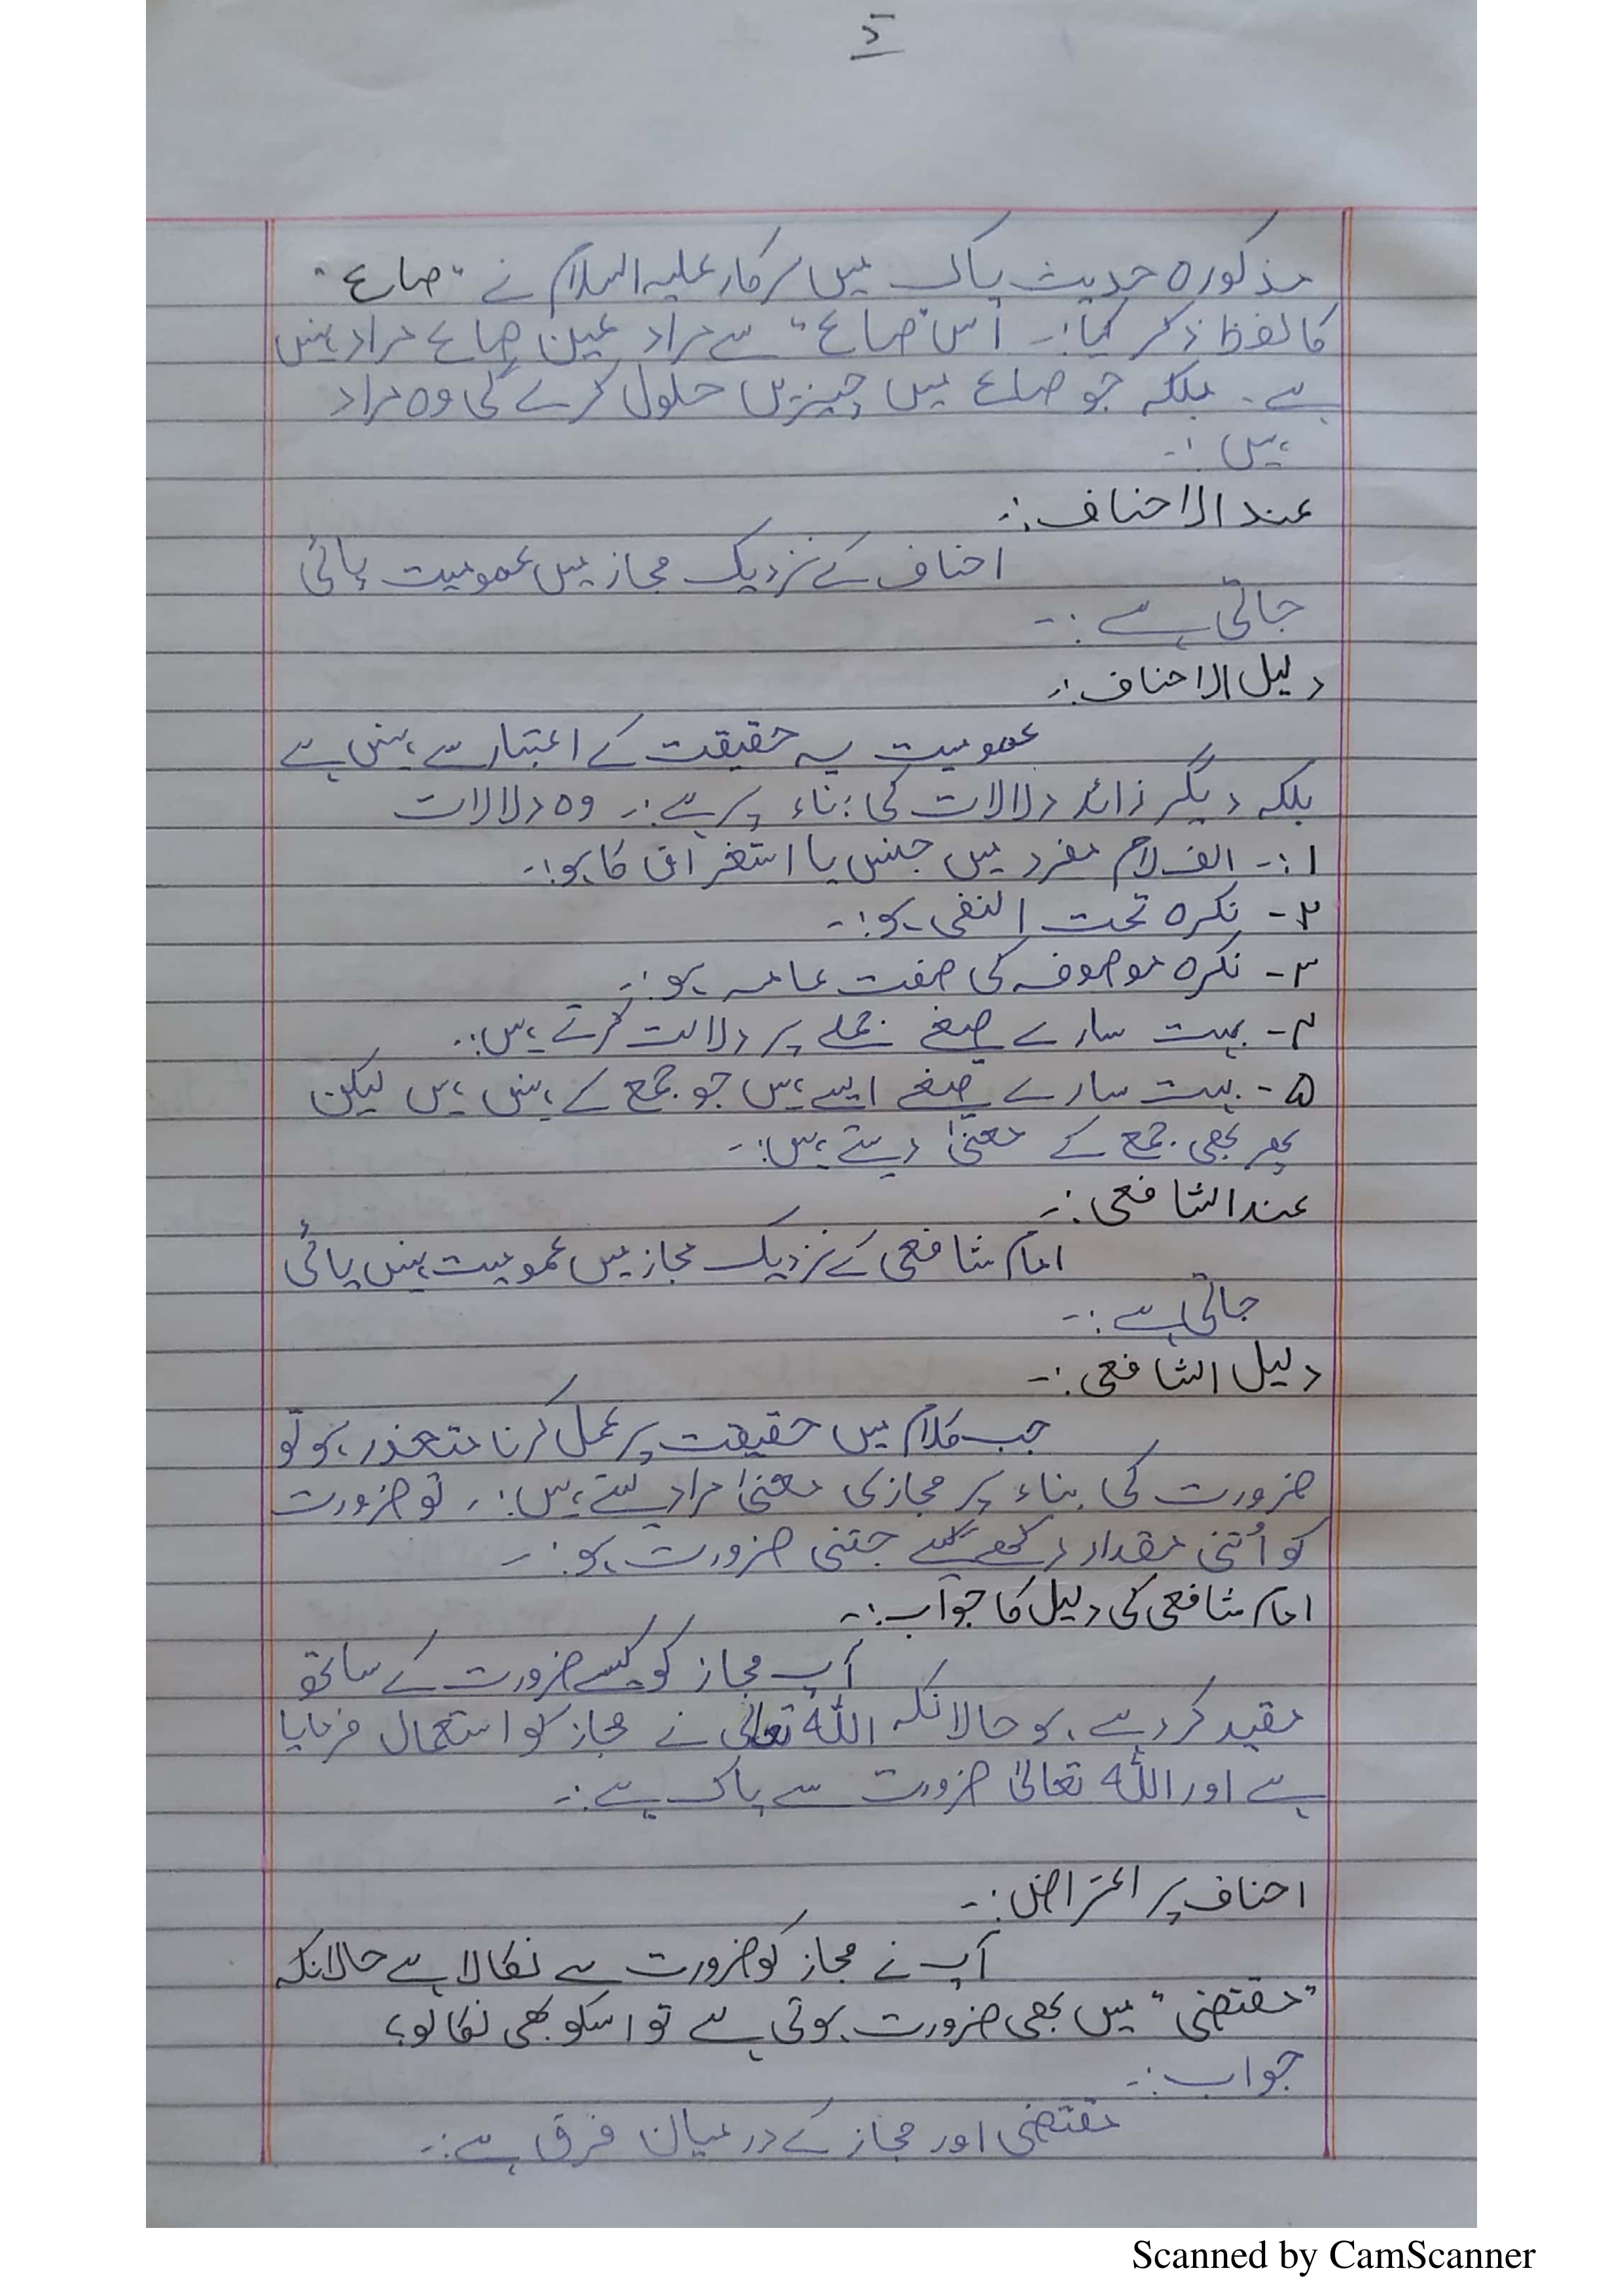 مذکورہ حدیث پاک میں سرکار علیہ السلام نے "صاع"
کا لفظ ذکر کیا:۔ اس "صاع" سے مراد عین صاع مراد نہیں
ہے۔ بلکہ جو صاع میں چیزیں حلول کرے گی وہ مراد
ہیں:۔
عند الاحناف:۔
احناف کے نزدیک مجاز میں عمومیت پائی
جاتی ہے:۔
دلیل الاحناف:۔
عمومیت یہ حقیقت کے اعتبار سے نہیں ہے
بلکہ دیگر زائد دلالات کی بناء پر ہے:۔ وہ دلالات
۱:۔ الف لام مفرد میں جنس یا استغراق کا ہو:۔
۲۔ نکرہ تحت النفی ہو:۔
۳۔ نکرہ موصوفہ کی صفت عامہ ہو:۔
۴۔ بہت سارے صیغے جملے پر دلالت کرتے ہیں:۔
۵۔ بہت سارے صیغے ایسے ہیں جو جمع کے نہیں ہیں لیکن
پھر بھی جمع کے معنیٰ دیتے ہیں:۔
عند الشافعی:۔
امام شافعی کے نزدیک مجاز میں عمومیت نہیں پائی
جاتی ہے:۔
دلیل الشافعی:۔
جب کلام میں حقیقت پر عمل کرنا متعذر ہو تو
ضرورت کی بناء پر مجازی معنیٰ مراد لیتے ہیں:۔ تو ضرورت
کو اُتنی مقدار رکھے گے جتنی ضرورت ہو:۔
امام شافعی کی دلیل کا جواب:۔
آپ مجاز کو کیسے ضرورت کے ساتھ
مقید کر رہے ہو حالانکہ اللہ تعالیٰ نے مجاز کو استعمال فرمایا
ہے اور اللہ تعالیٰ ضرورت سے پاک ہے:۔
احناف پر اعتراض:۔
آپ نے مجاز کو ضرورت سے نکالا ہے حالانکہ
"مقتضی" میں بھی ضرورت ہوتی ہے تو اسکو بھی نکالو؟
جواب:۔
مقتضی اور مجاز کے درمیان فرق ہے:۔
Scanned by CamScanner